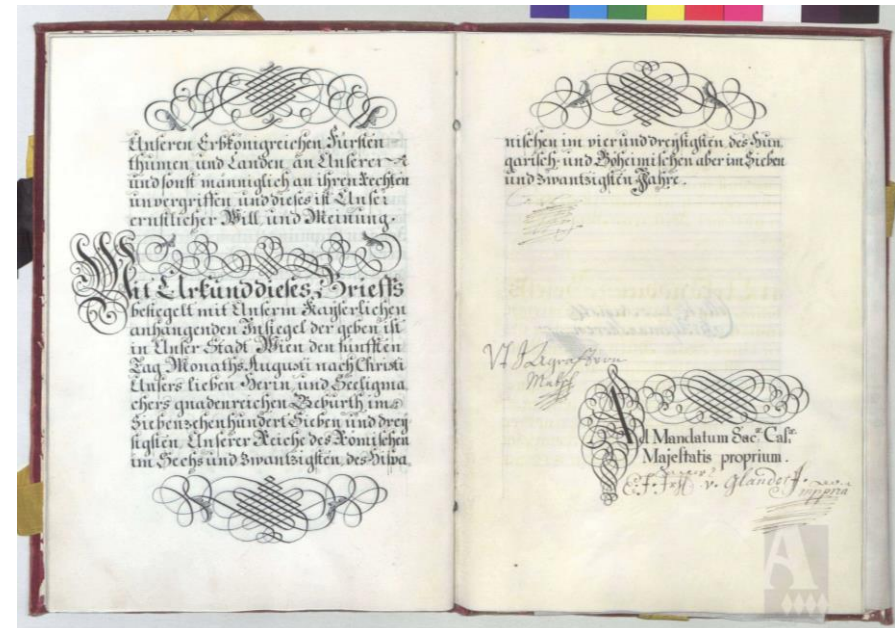 Unseren Erbkönigreichen, Fürsten
thumen, und Landen, an Unserer
und sonst männiglich an ihren Rechten
unvergriffen, und dieses ist Unser
ernstlicher Will und Meinung.
Mit Urkund dieses Brieffs
besiegelt mit Unserm Kayserlichen
anhangenden Insiegel der geben ist
in Unser Stadt Wien den fünfften
Tag Monaths Augusti nach Christi
Unsers lieben Herrn, und Seeligma
chers gnadenreichen Geburth im
Siebenzehenhundert Sieben und drey
sigsten, Unserer Reiche des Römischen
im Sechs und Zwantzigsten, des Hispa,
nischen im vier und dreysigsten, des Hun,
garisch- und Böheimischen aber im Sieben
und Zwantzigsten Jahre.
Ad Mandatum Sac.æ Cæs.æ
Majestatis proprium.
v. Glandorf
mppria